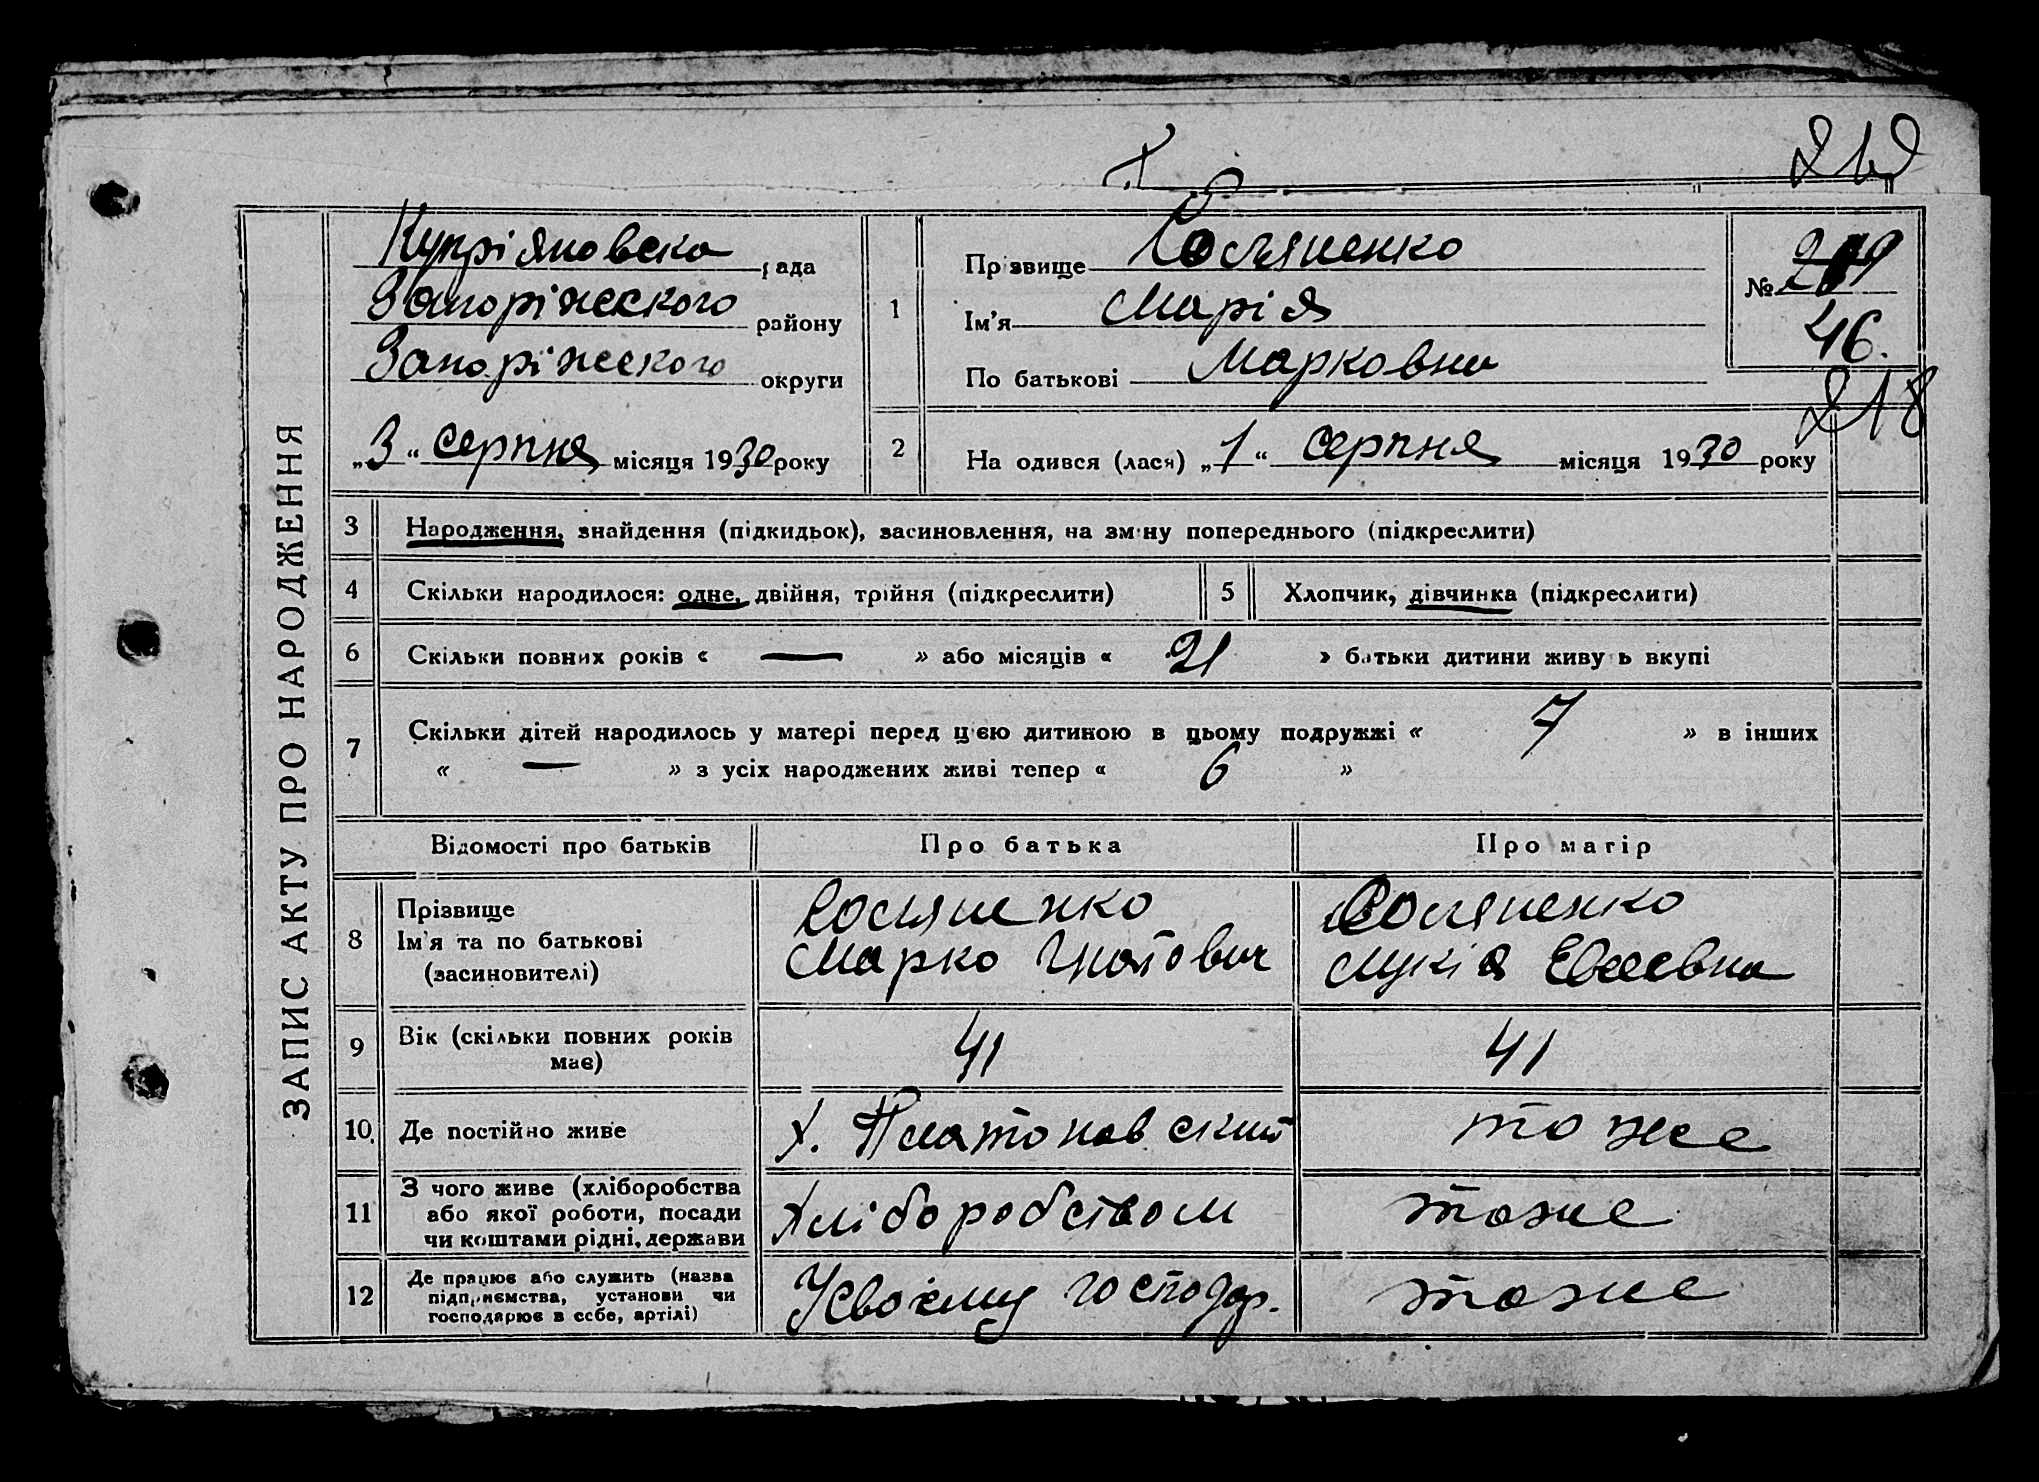 212
Купріяновска рада
Запоріжского району
Запоріжского округи
„3“ серпня місяця 1930 року
1
Прізвище Косляненко
Ім'я Марія
По батькові Марковна
№ 219
46.
218
2
На одився (лася) „1“ серпня місяця 1930 року
ЗАПИС АКТУ ПРО НАРОДЖЕННЯ
3 Народження, знайдення (підкидьок), засиновлення, на зміну попереднього (підкреслити)
4 Скільки народилося: одне, двійня, трійня (підкреслити) 5 Хлопчик, дівчинка (підкреслити)
6 Скільки повних років « — » або місяців « 21 » батьки дитини живуть вкупі
7 Скільки дітей народилось у матері перед цією дитиною в цьому подружжі « 7 » в інших
« — » з усіх народжених живі тепер « 6 »
Відомості про батьків Про батька Про матір
8 Прізвище
Ім'я та по батькові
(засиновителі)
Марко Гнатович
Лукія Евсеевна
9 Вік (скільки повних років має) 41 41
10. Де постійно живе х. Платоновский тоже
11 З чого живе (хліборобства
або якої роботи, посади
чи коштами рідні, держави
Хліборобством тоже
12 Де працює або служить (назва
підприємства, установи чи
господарює в себе, артілі)
У своему господар. тоже